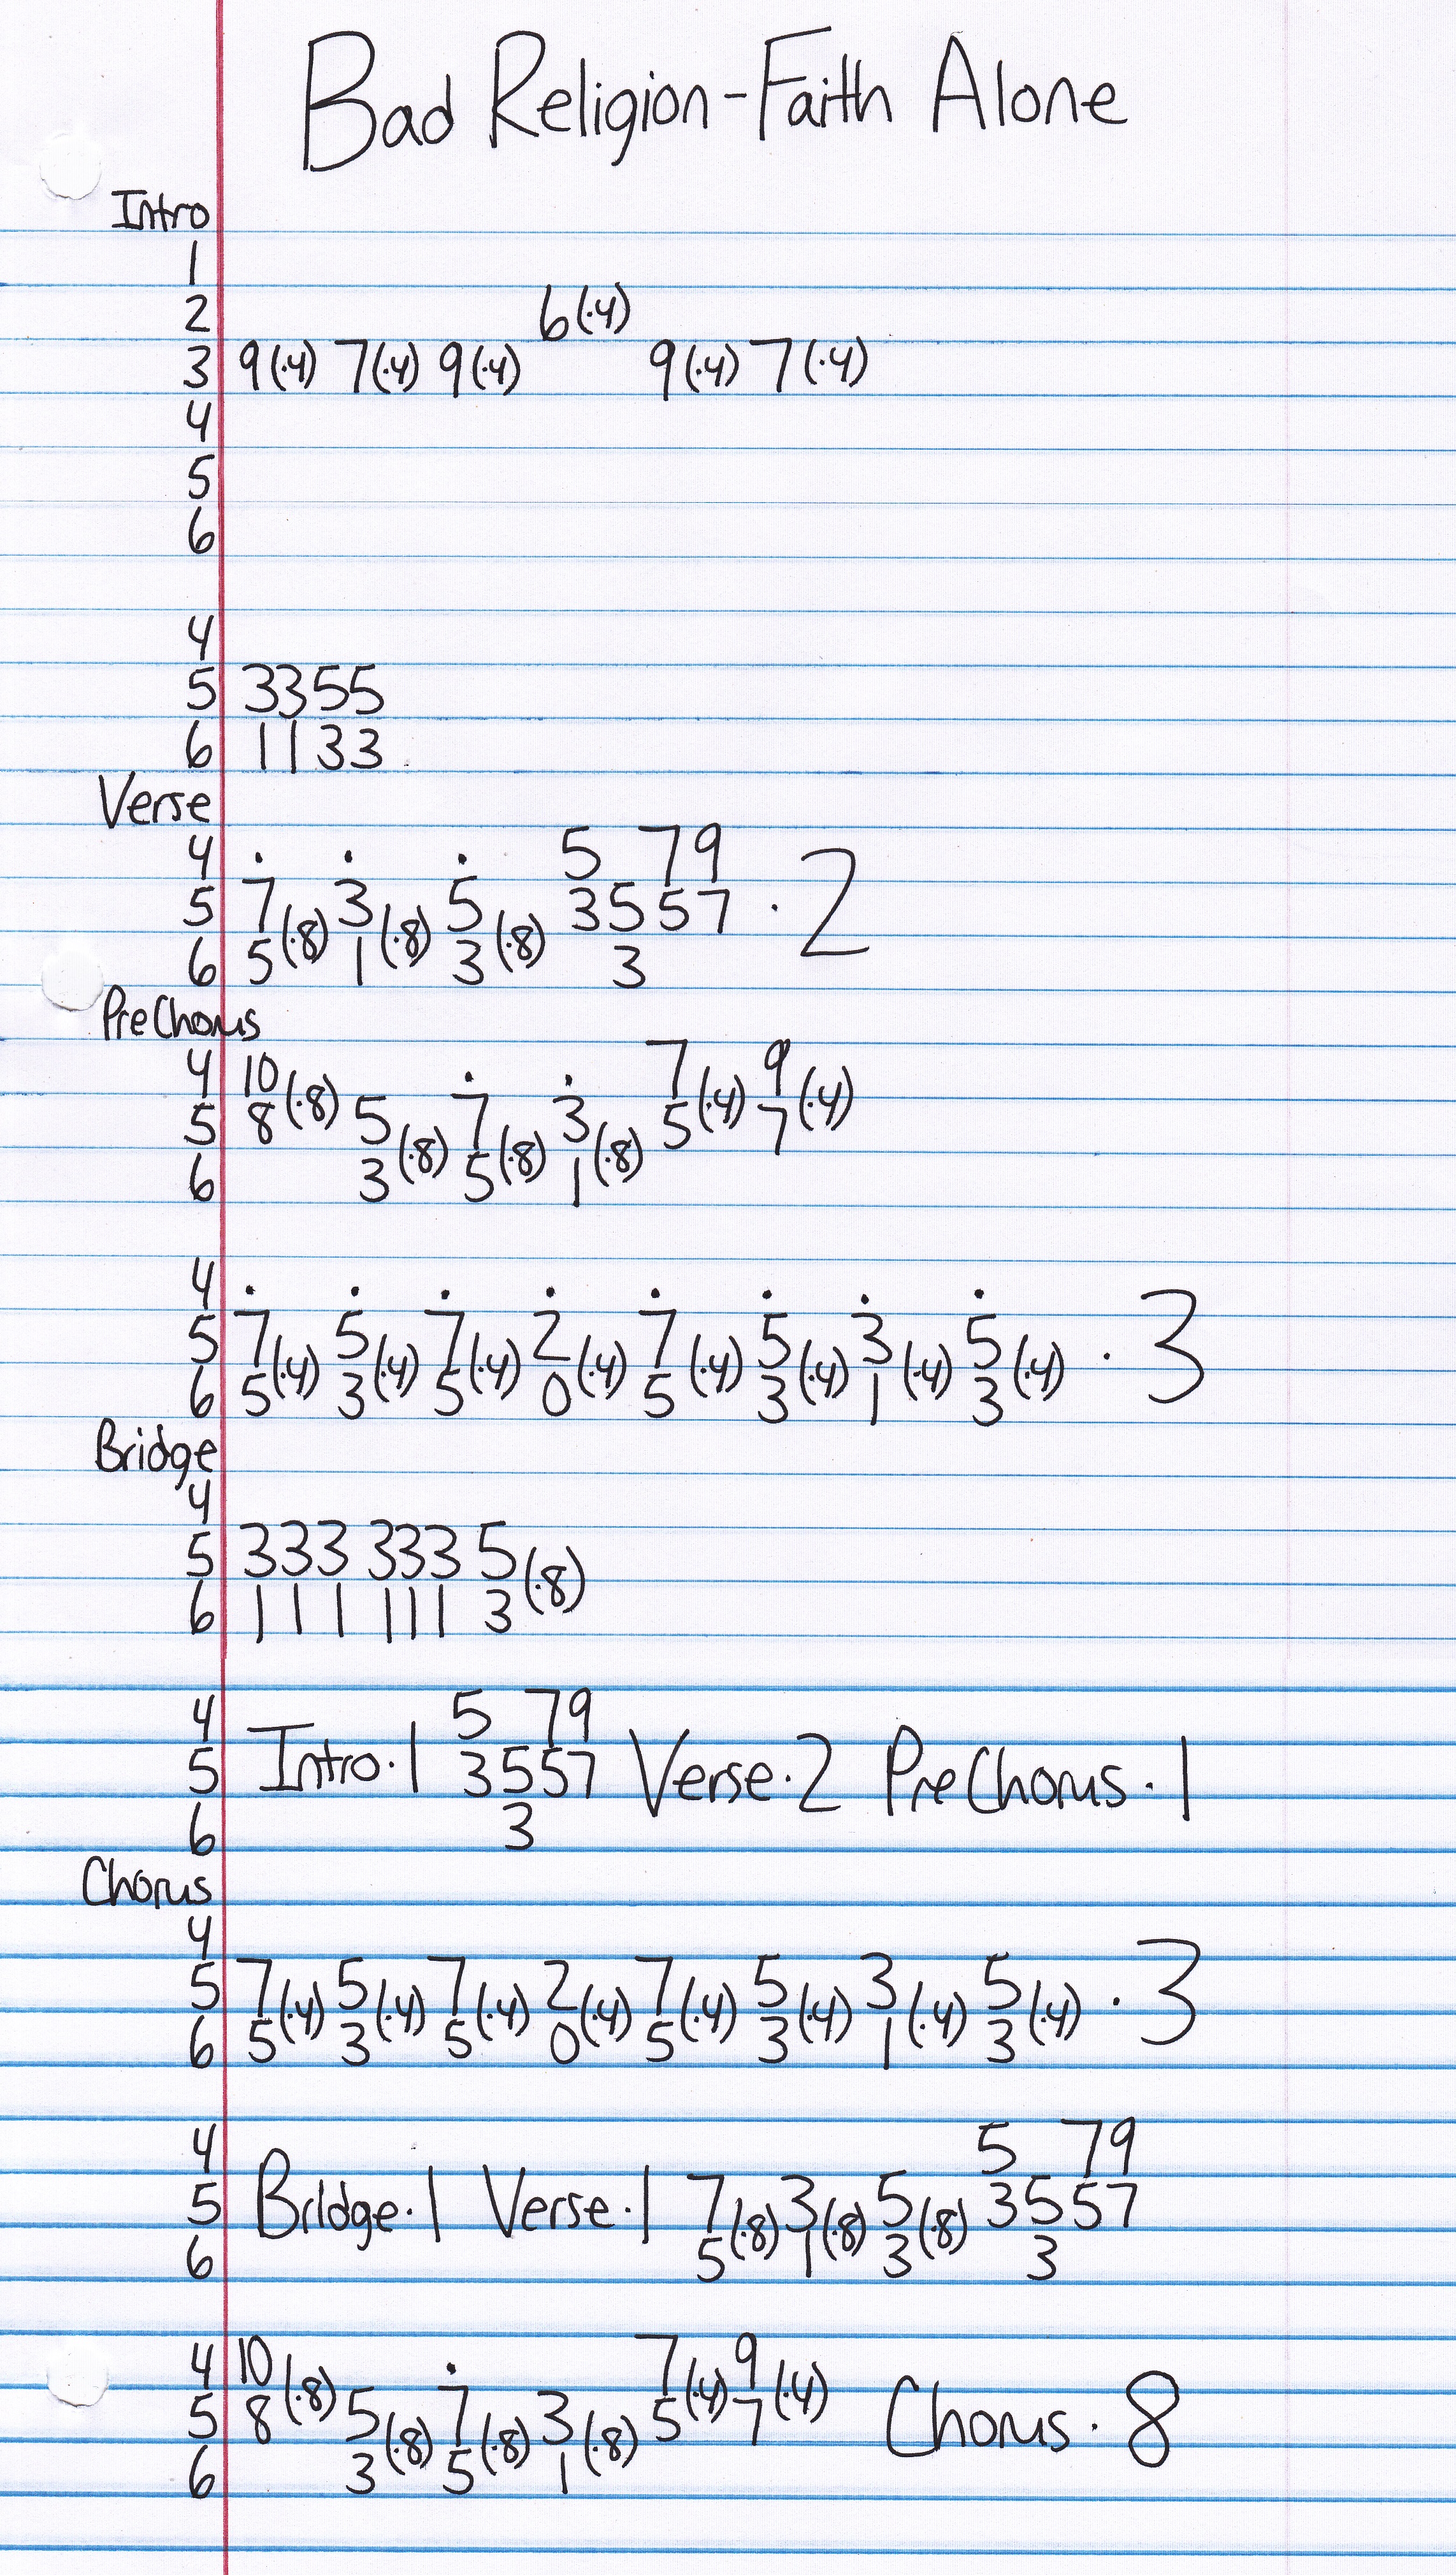 Bad Religion-Faith Alone
Intro
1
2 6(·4)
3 9(·4) 7(·4) 9(·4) 9(·4) 7(·4)
4
5
6
4
5 3355
6 1133
Verse
4 . . . 5 79
5 7(·8) 3(·8) 5(·8) 3557 · 2
6 5 1 3 3
PreChorus
4 10(·8) . . 7(·4) 9(·4)
5 8 5(·8) 7(·8) 3(·8) 5 7
6 3 5 1
4 . . . . . . . .
5 7(·4) 5(·4) 7(·4) 2(·4) 7(·4) 5(·4) 3(·4) 5(·4) · 3
6 5 3 5 0 5 3 1 3
Bridge
4
5 333 333 5(·8)
6 111 111 3
4 5 79
5 Intro·1 3557 Verse·2 PreChorus·1
6 3
Chorus
4
5 7(·4) 5(·4) 7(·4) 2(·4) 7(·4) 5(·4) 3(·4) 5(·4) · 3
6 5 3 5 0 5 3 1 3
4 5 79
5 Bridge·1 Verse·1 7(·8) 3(·8) 5(·8) 3557
6 5 1 3 3
4 10(·8) . 7(·4) 9(·4)
5 8 5(·8) 7(·8) 3(·8) 5 7 Chorus·8
6 3 5 1